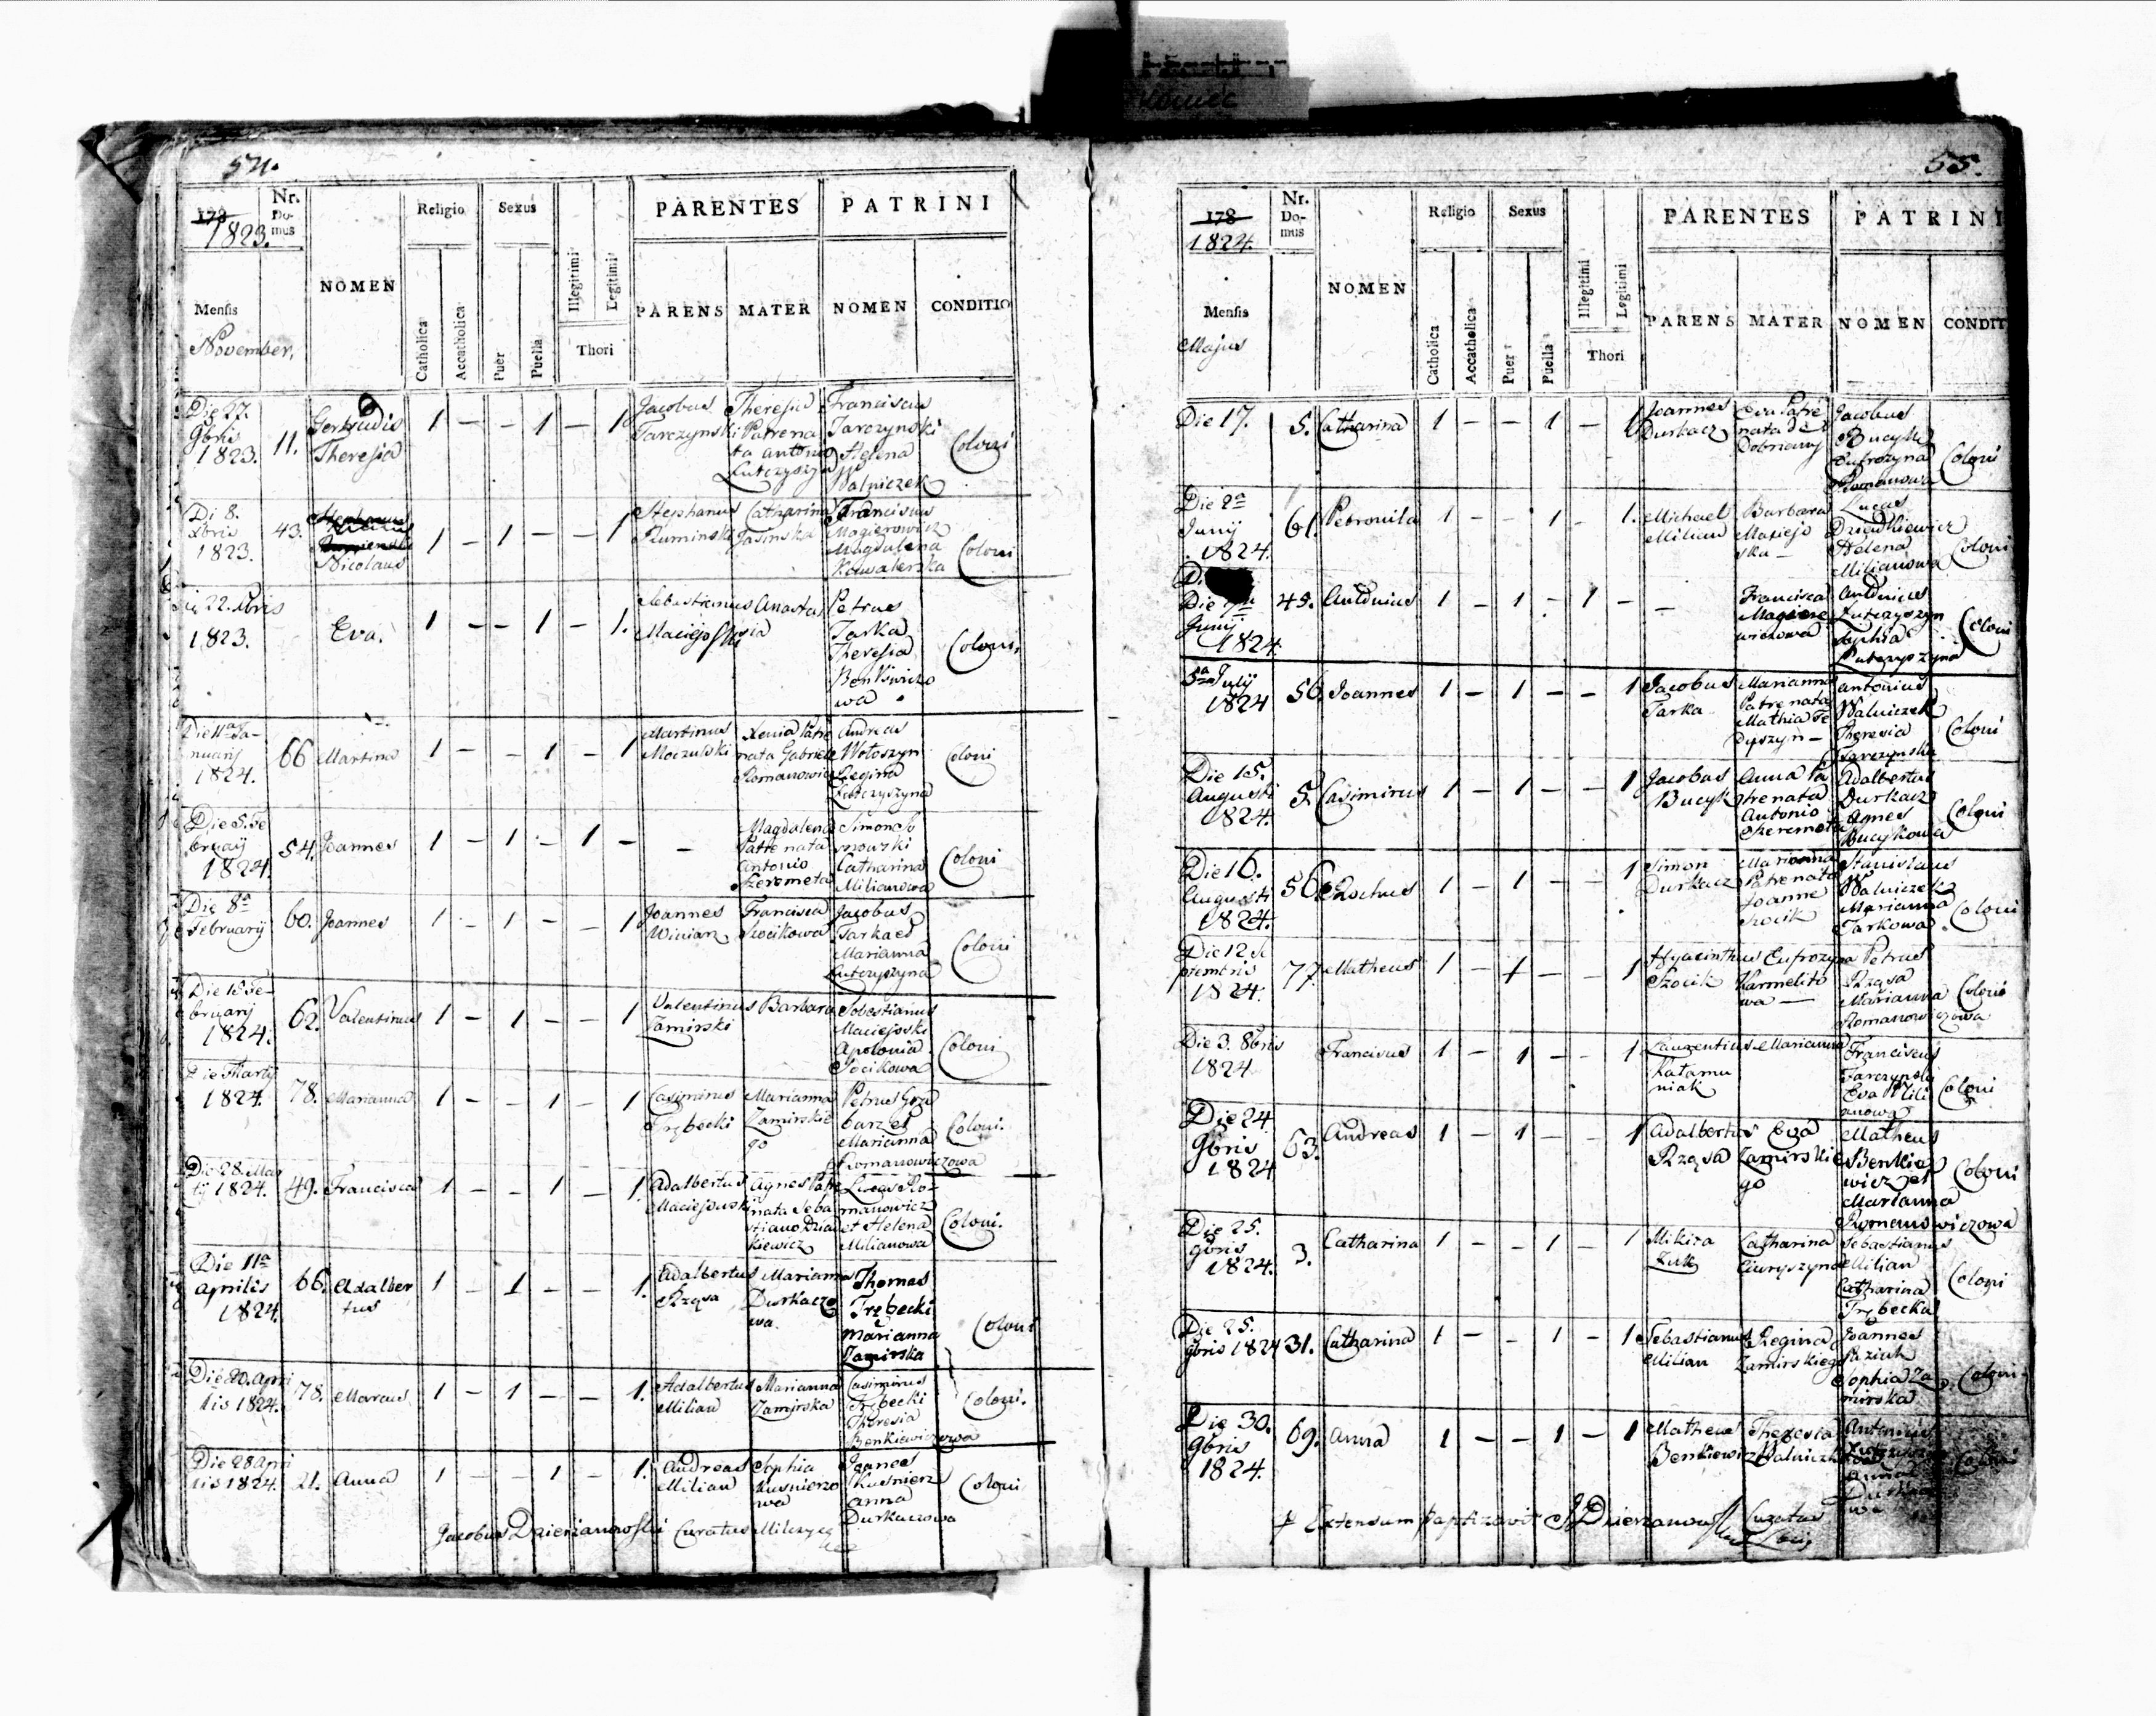 54.
178
1823.
Nr. Domus
NOMEN
Religio
Sexus
Illegitimi
Legitimi
Thori
PARENTES
PATRINI
Mensis
November,
Catholica
Accatholica
Puer
Puella
PARENS
MATER
NOMEN
CONDITIO
Die 27. 9bris 1823. 11. Gertrudis Theresia 1 – – 1 – 1 Jacobus Tarczynski Theresia Patre nata Antonio Lutczyszyn Franciscus Tarczynski Helena Walniczek Coloni
Di 8. Xbris 1823. 43. Nicolaus 1 – 1 – – 1 Stephanus Ruminski Catharina Jasinska Franciscus Magierowicz Magdalena Kowalerska Coloni
22. Xbris 1823. Eva. 1 – – 1 – 1. Sebastianus Maciejoski Anastasia Petrus Tarka Theresia Coloni,
Januarij 1824. 66 Martina 1 – – 1 – 1 Martinus Moczulski Xenia Patre nata Gabriele Romanowicz Andreas Wołoszyn Regina Coloni
Die 5. Februarij 1824. 54. Joannes 1 – 1 – 1 – – Magdalena Patre nata Antonio Szeremeta Simon Catharina Milianowa Coloni
Die 8a Februarij 60. Joannes 1 – 1 – – 1 Joannes Winiarz Francisca Socikowa Jacobus Tarka et Marianna Lutczyszyna Coloni
Februarij 1824. 62. Valentinus 1 – 1 – – 1 Valentinus Zamirski Barbara Sebestianus Maciejoski Apolonia Socikowa Coloni
Martij 1824. 78. Marianna 1 – – 1 – 1 Casimirus Trębecki Marianna Zamirskiego Petrus et Marianna Romanowiczowa Coloni.
Die 28. Martij 1824. 49. Francisca 1 – – 1 – 1. Adalbertus Maciejowski Agnes Patre nata Sebastiano Lucas Romanowicz et Helena Milianowa Coloni.
Die 11a Aprilis 1824. 66. Adalbertus 1 – 1 – – 1. Adalbertus Rząsa Marianna Durkaczowa Thomas Trębecki Marianna Zamirska Coloni
Die 20. Aprilis 1824. 78. Marcus 1 – 1 – – 1. Adalbertus Milian Marianna Zamirska Casimirus Trębecki Theresia Benkiewiczowa Coloni.
Die 28 Aprilis 1824. 21. Anna 1 – – 1 – 1. Andreas Milian Sophia Kusnierzowa Joannes Kusnierz Anna Durkaczowa Coloni
Jacobus Dzierzanowski Curatus
55.
178
1824.
Nr. Domus
NOMEN
Religio
Sexus
Illegitimi
Legitimi
Thori
PARENTES
PATRINI
Mensis
Majus
Catholica
Accatholica
Puer
Puella
PARENS
MATER
NOMEN
CONDIT
Die 17. 5. Catharina 1 – – 1 – 1 Joannes Durkacz Eva Patre nata Jacobus Bucyk Eufrozyna Romanowa Coloni
Die 2a Junij 1824. 61. Petronila 1 – – 1 – 1. Michael Milian Barbara Maciejoska – Lucas Helena Milianowa Coloni
Die Junij 1824. 45. Antonius 1 – 1 – 1 – – Francisca Antonius Lutczyszyn Sophia Lutczyszyna Coloni
5a Julij 1824 56. Joannes 1 – 1 – – 1 Jacobus Tarka Marianna Patre nata Mathia Antonius Walniczek Theresia Tarczynska Coloni
Die 15. Augusti 1824. 5. Casimirus 1 – 1 – – 1 Jacobus Bucyk Anna Patre nata Antonio Szeremeta Adalbertus Durkacz Agnes Bucykowa Coloni
Die 16. Augusti 1824. 56. Rochus 1 – 1 – – 1 Simon Durkacz Marianna Patre nata Joanne Socik Stanislaus Walniczek Marianna Tarkowa Coloni
Die 12 Septembris 1824. 77. Matheus 1 – 1 – – 1 Hyacinthus Szocik Eufrozyna Karmelitowa – Petrus Rząsa Marianna Romanowiczowa Coloni
Die 3. 8bris 1824 Franciscus 1 – 1 – – 1. Laurentius Katamuniak Marianna Franciscus Tarczynski Eva Milianowa Coloni
Die 24 9bris 1824 63. Andreas 1 – 1 – – 1 Adalbertus Rząsa Eva Zamirskiego Matheus Benkiewicz et Marianna Romanowiczowa Coloni
Die 25. 9bris 1824. 3. Catharina 1 – – 1 – 1 Mikita Żuk Catharina Sebastianus Milian Catharina Trębecka Coloni
Die 25. 9bris 1824 31. Catharina 1 – – 1 – 1 Sebastianus Milian Regina Zamirskiego Joannes Paziuk Sophia Zamirska Coloni
Die 30. 9bris 1824. 69. Anna 1 – – 1 – 1 Matheus Benkiewicz Theresia Antonius Coloni
Extensum baptizavit J Dzierzanowski Curatus